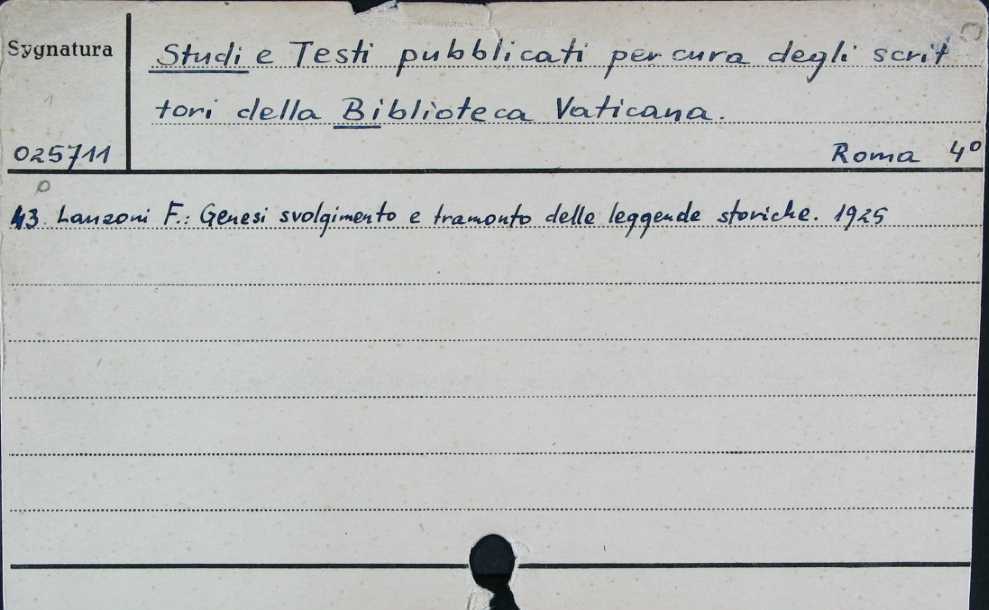 Sygnatura
Studi e Testi pubblicati per cura degli scrit
tori della Biblioteca Vaticana.
025711
Roma 4º
43. Lanzoni F.: Genesi svolgimento e tramonto delle leggende storiche. 1925